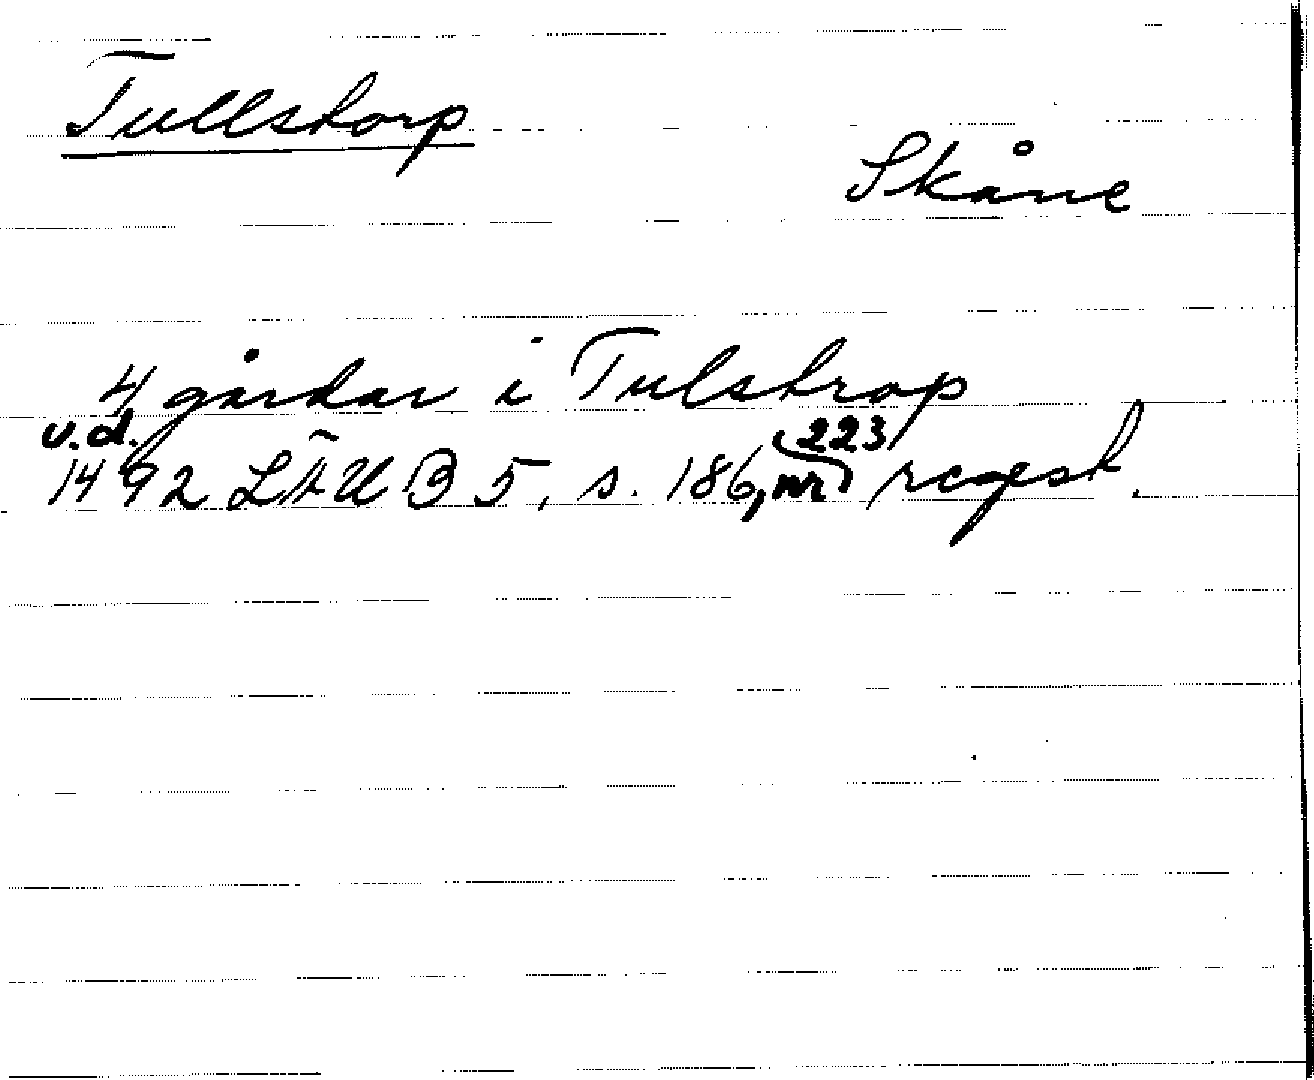 Tullstorp
Skåne
4 gårdar i Tulstrop
u.d.
1492 LÄUB 5, s. 186, nr 223 regest.